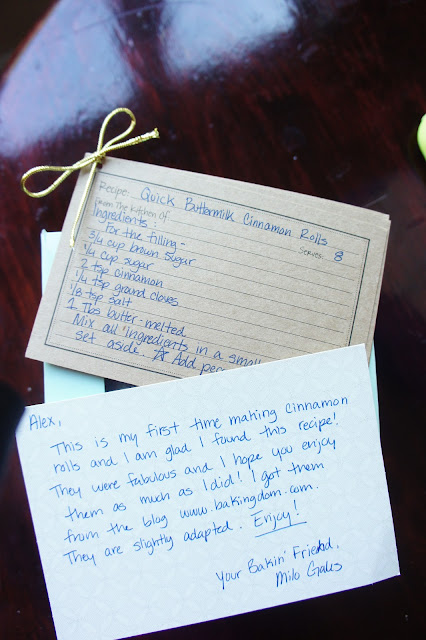 Recipe: Quick Buttermilk Cinnamon Rolls
From The Kitchen Of
Serves: 8
Ingredients:
For the filling -
3/4 cup brown sugar
1/4 cup sugar
2 tsp cinnamon
1/4 tsp ground cloves
1/8 tsp salt
1 Tbs butter - melted
Mix all ingredients in a small
set aside. ☆ Add
Alex,
This is my first time making cinnamon
rolls and I am glad I found this recipe!
They were fabulous and I hope you enjoy
them as much as I did! I got them
from the blog www.bakingdom.com.
They are slightly adapted. Enjoy!
Your Bakin' Friend,
Milo